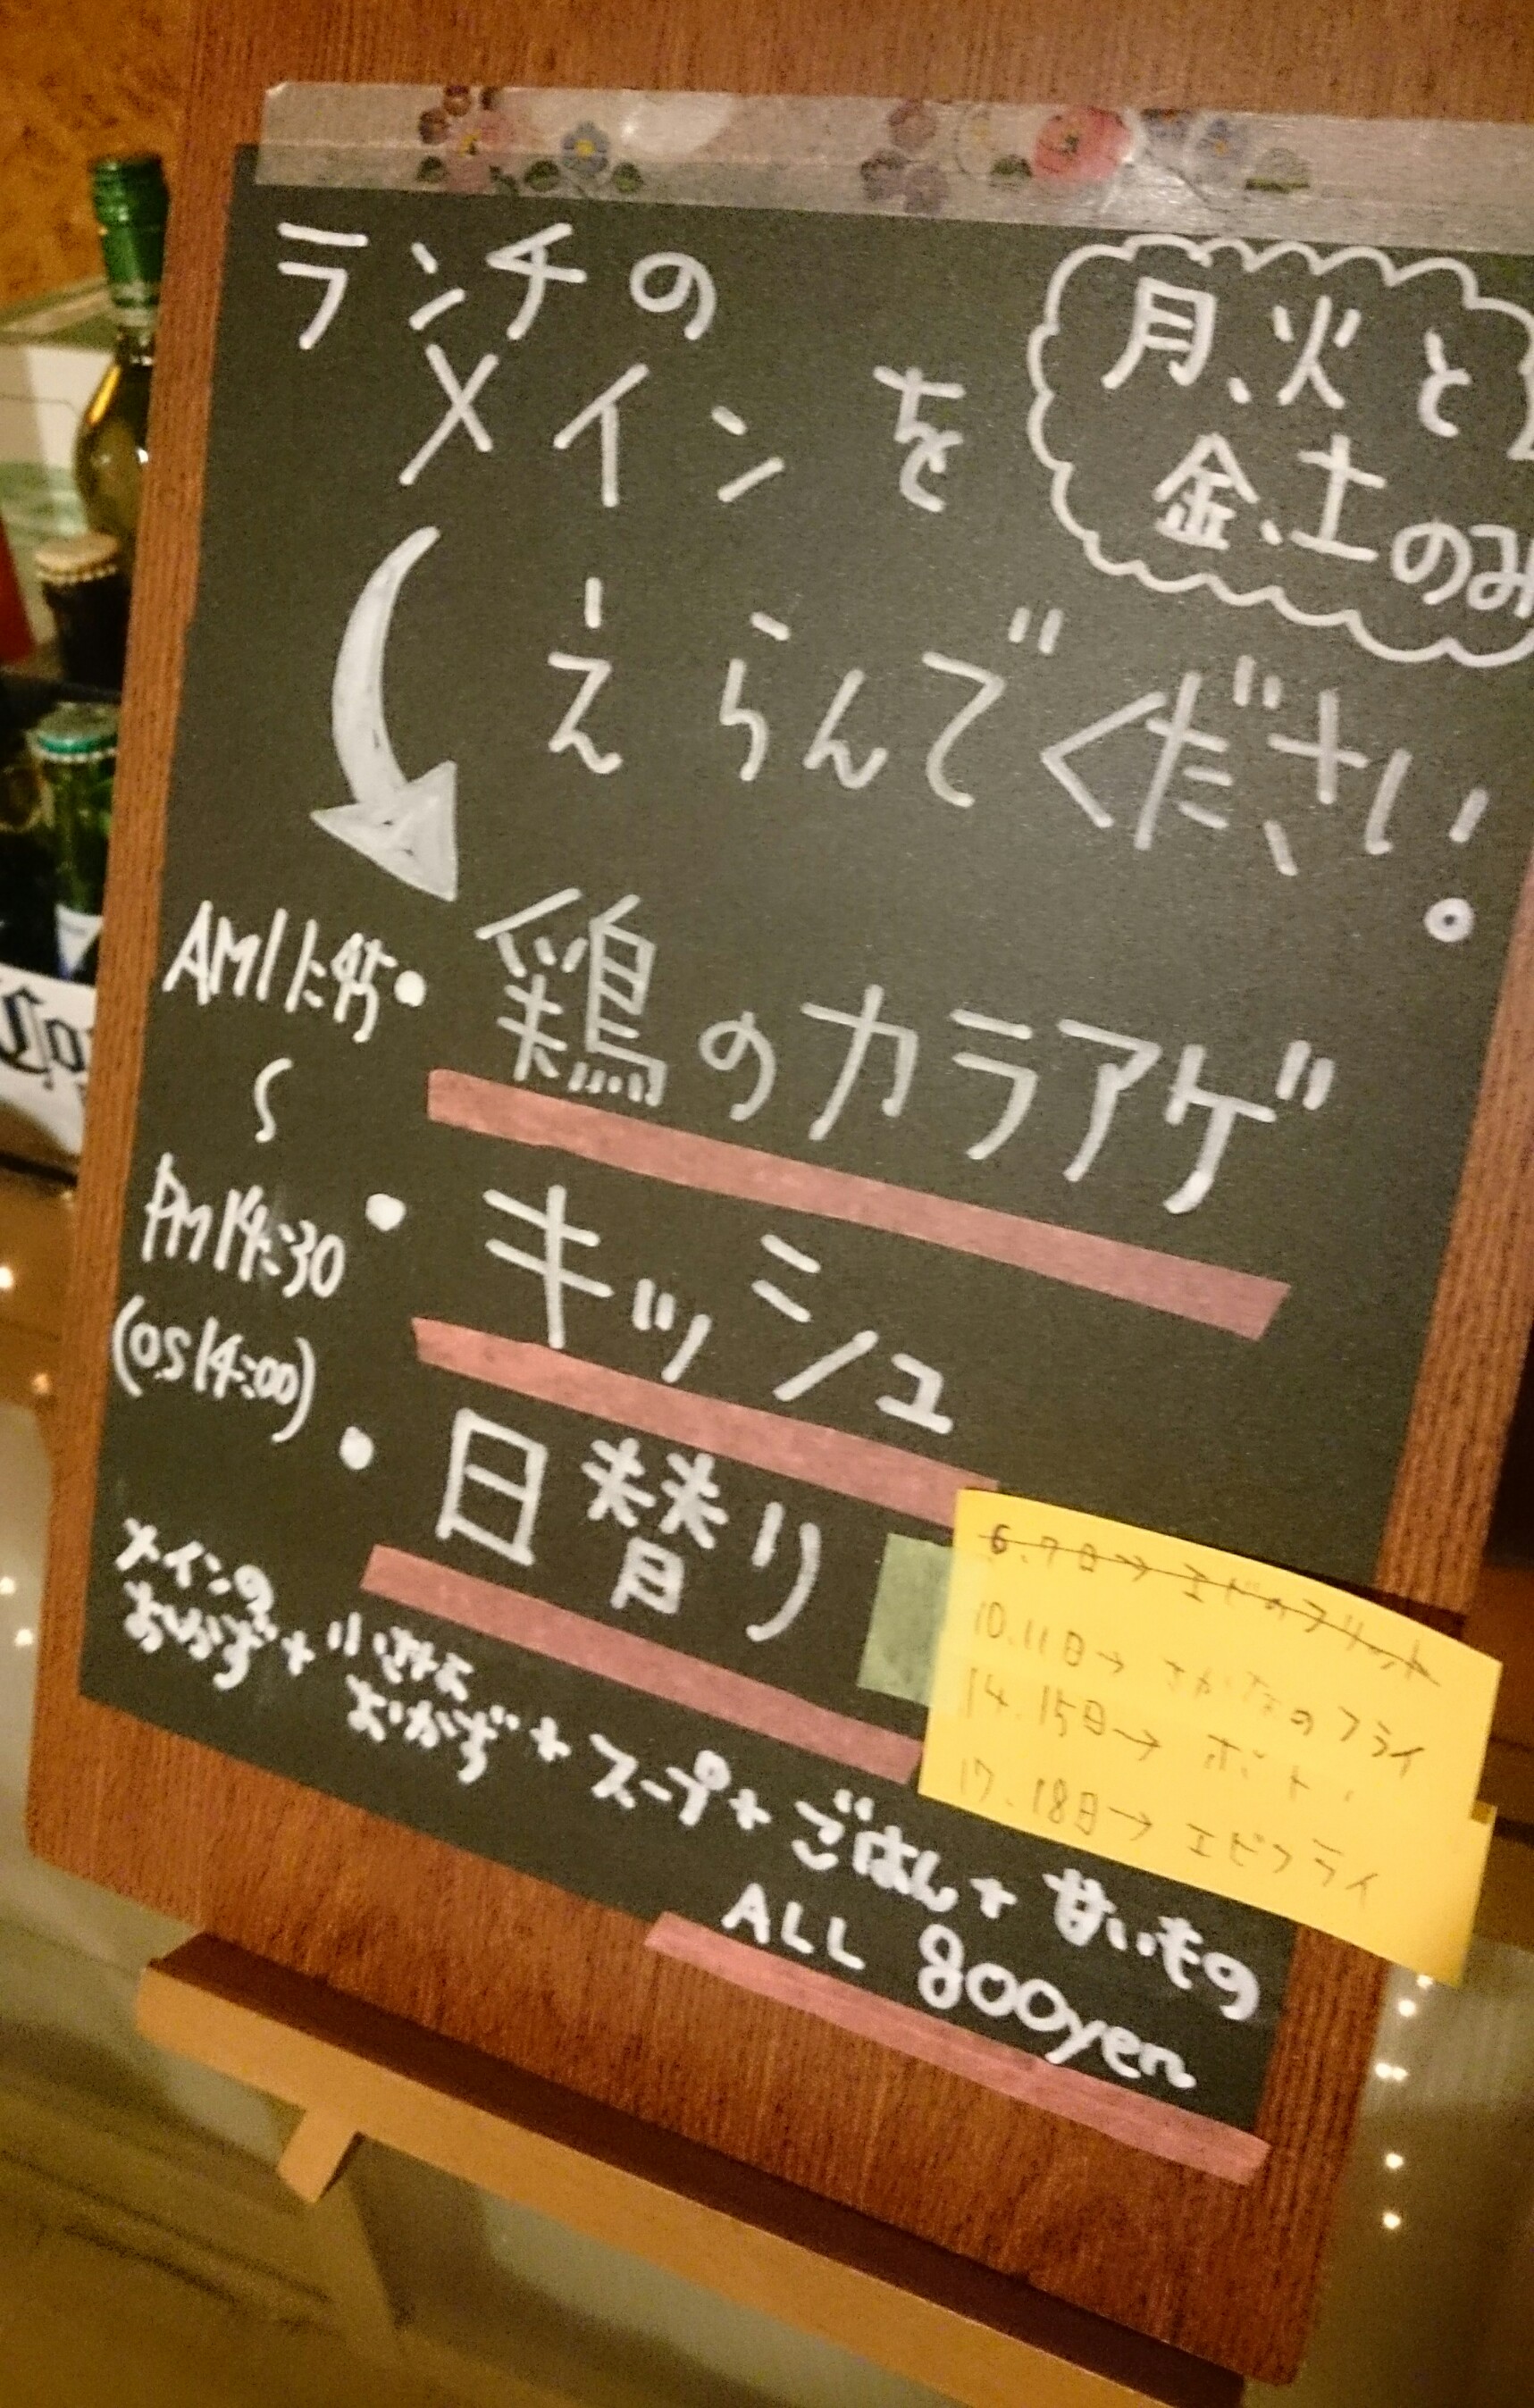 ランチの
メインを
えらんでください!
月、火と
金、土のみ
AM11:45
〜
PM14:30
(OS14:00)
・鶏のカラアゲ
・キッシュ
・日替り
6.7日→エビのフリット
10.11日→さかなのフライ
14.15日→
17.18日→エビフライ
メインの
おかず+小さな
おかず+スープ+ごはん+甘いもの
ALL 800yen